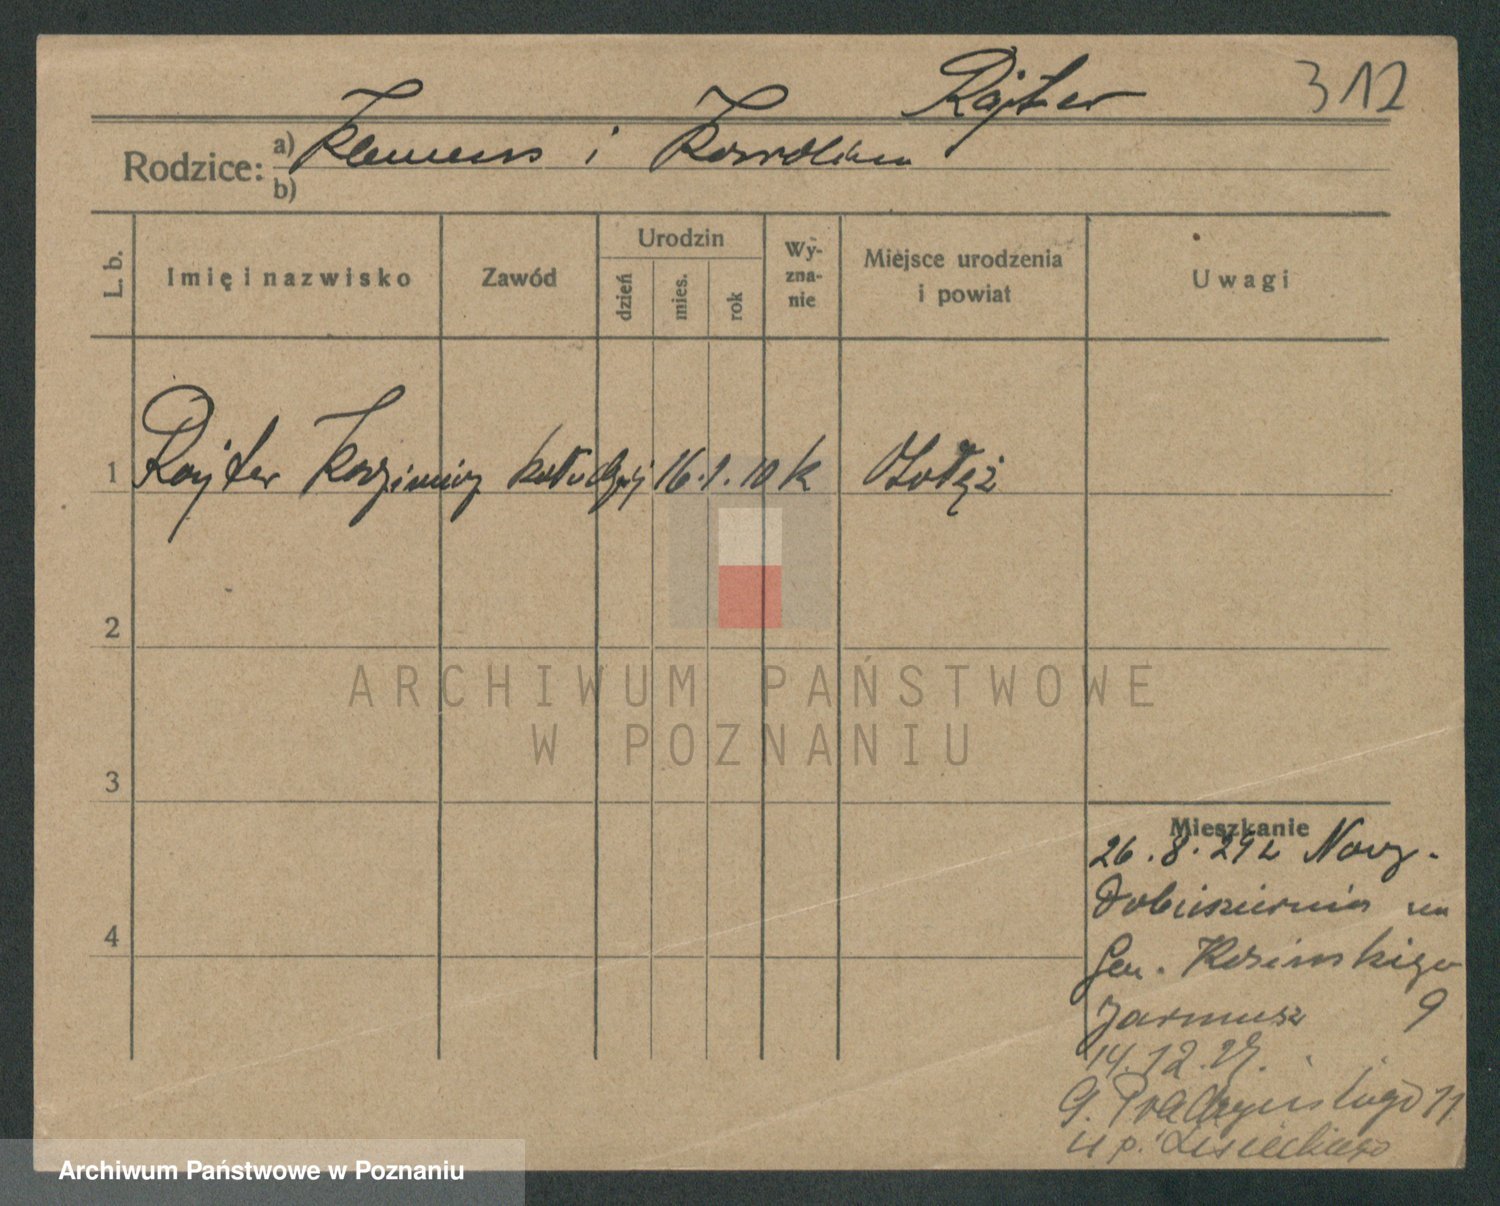 Rajter 312
Rodzice: a) Klemens i Karolina
b)
L. b. Imię i nazwisko Zawód Urodzin dzień mies. rok Wyzna-nie Miejsce urodzenia i powiat Uwagi
1 Rajter Kazimierz kołodziej 16.1.10 k
2
ARCHIWUM PAŃSTWOWE
W POZNANIU
3
Mieszkanie
26.8.29 z Now.
4
Gen. Kosińskiego
Jarmusz 9
14.12.29.
G. Prądzyńskiego 11
u p. Lisieckiego
Archiwum Państwowe w Poznaniu